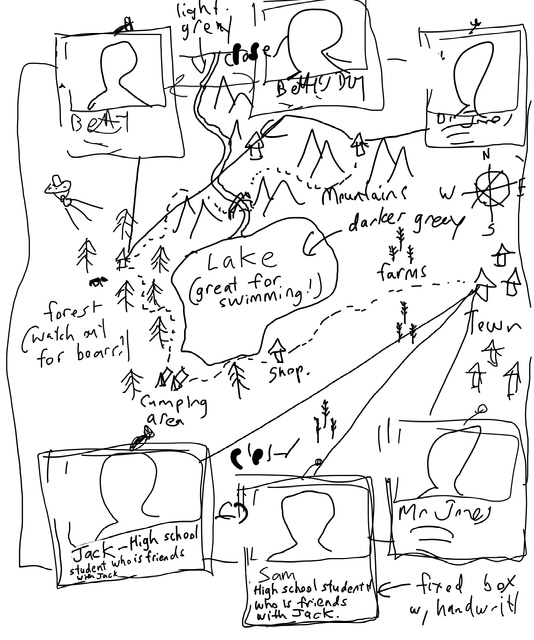 light.
grey
close
Betty
Betty
Dr Jones
N
W
E
S
Mountains
darker greeny
Lake
(great for
swimming!)
farms
forest
(watch out
for boars!)
Town
shop.
Camping
area
Jack - High school
student who is friends
with Jack
Sam
High school student
who is friends
with Jack.
Mr Jones
fixed box
w/ handwriti